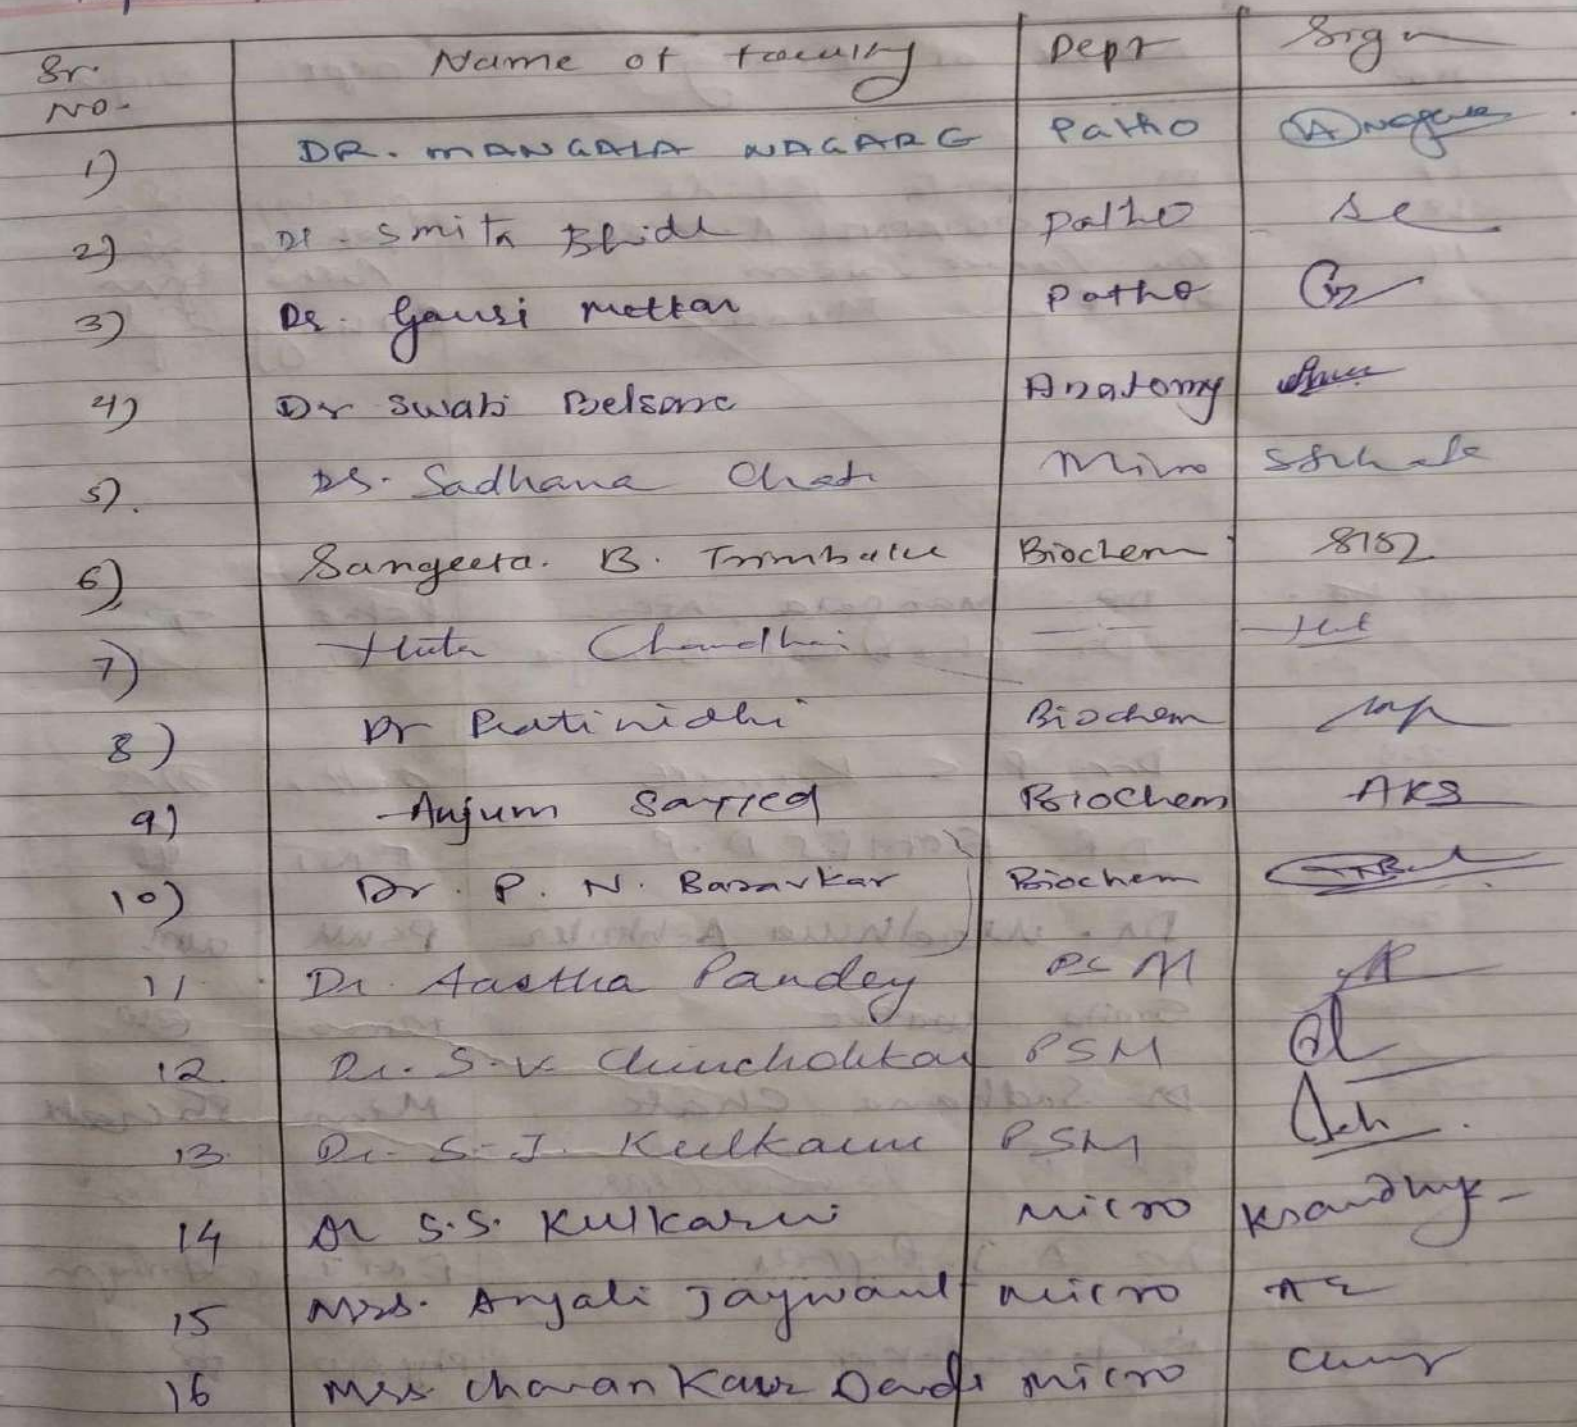 Sr. No. Name of faculty Dept Sign
1) DR. MANGALA NAGARG Patho
2) Dr. Smita Bhide Patho
3) Dr. Gauri Mettar Patho
4) Dr Swati Belsare Anatomy
5). Dr. Sadhana Chate Micro
6) Sangeeta. B. Trimbake Biochem
7) Huta Chaudhari
8) Dr Pratinidhi Biochem
9) Anjum Sayyed Biochem AKS
10) Dr. P. N. Basavkar Biochem
11 Dr. Aastha Pandey PSM
12. Dr. S. V. Chincholikar PSM
13. Dr. S. J. Kulkarni PSM
14 Dr S.S. Kulkarni Micro
15 Mrs. Anjali Jaywant Micro
16 Mrs Charan Kaur Micro